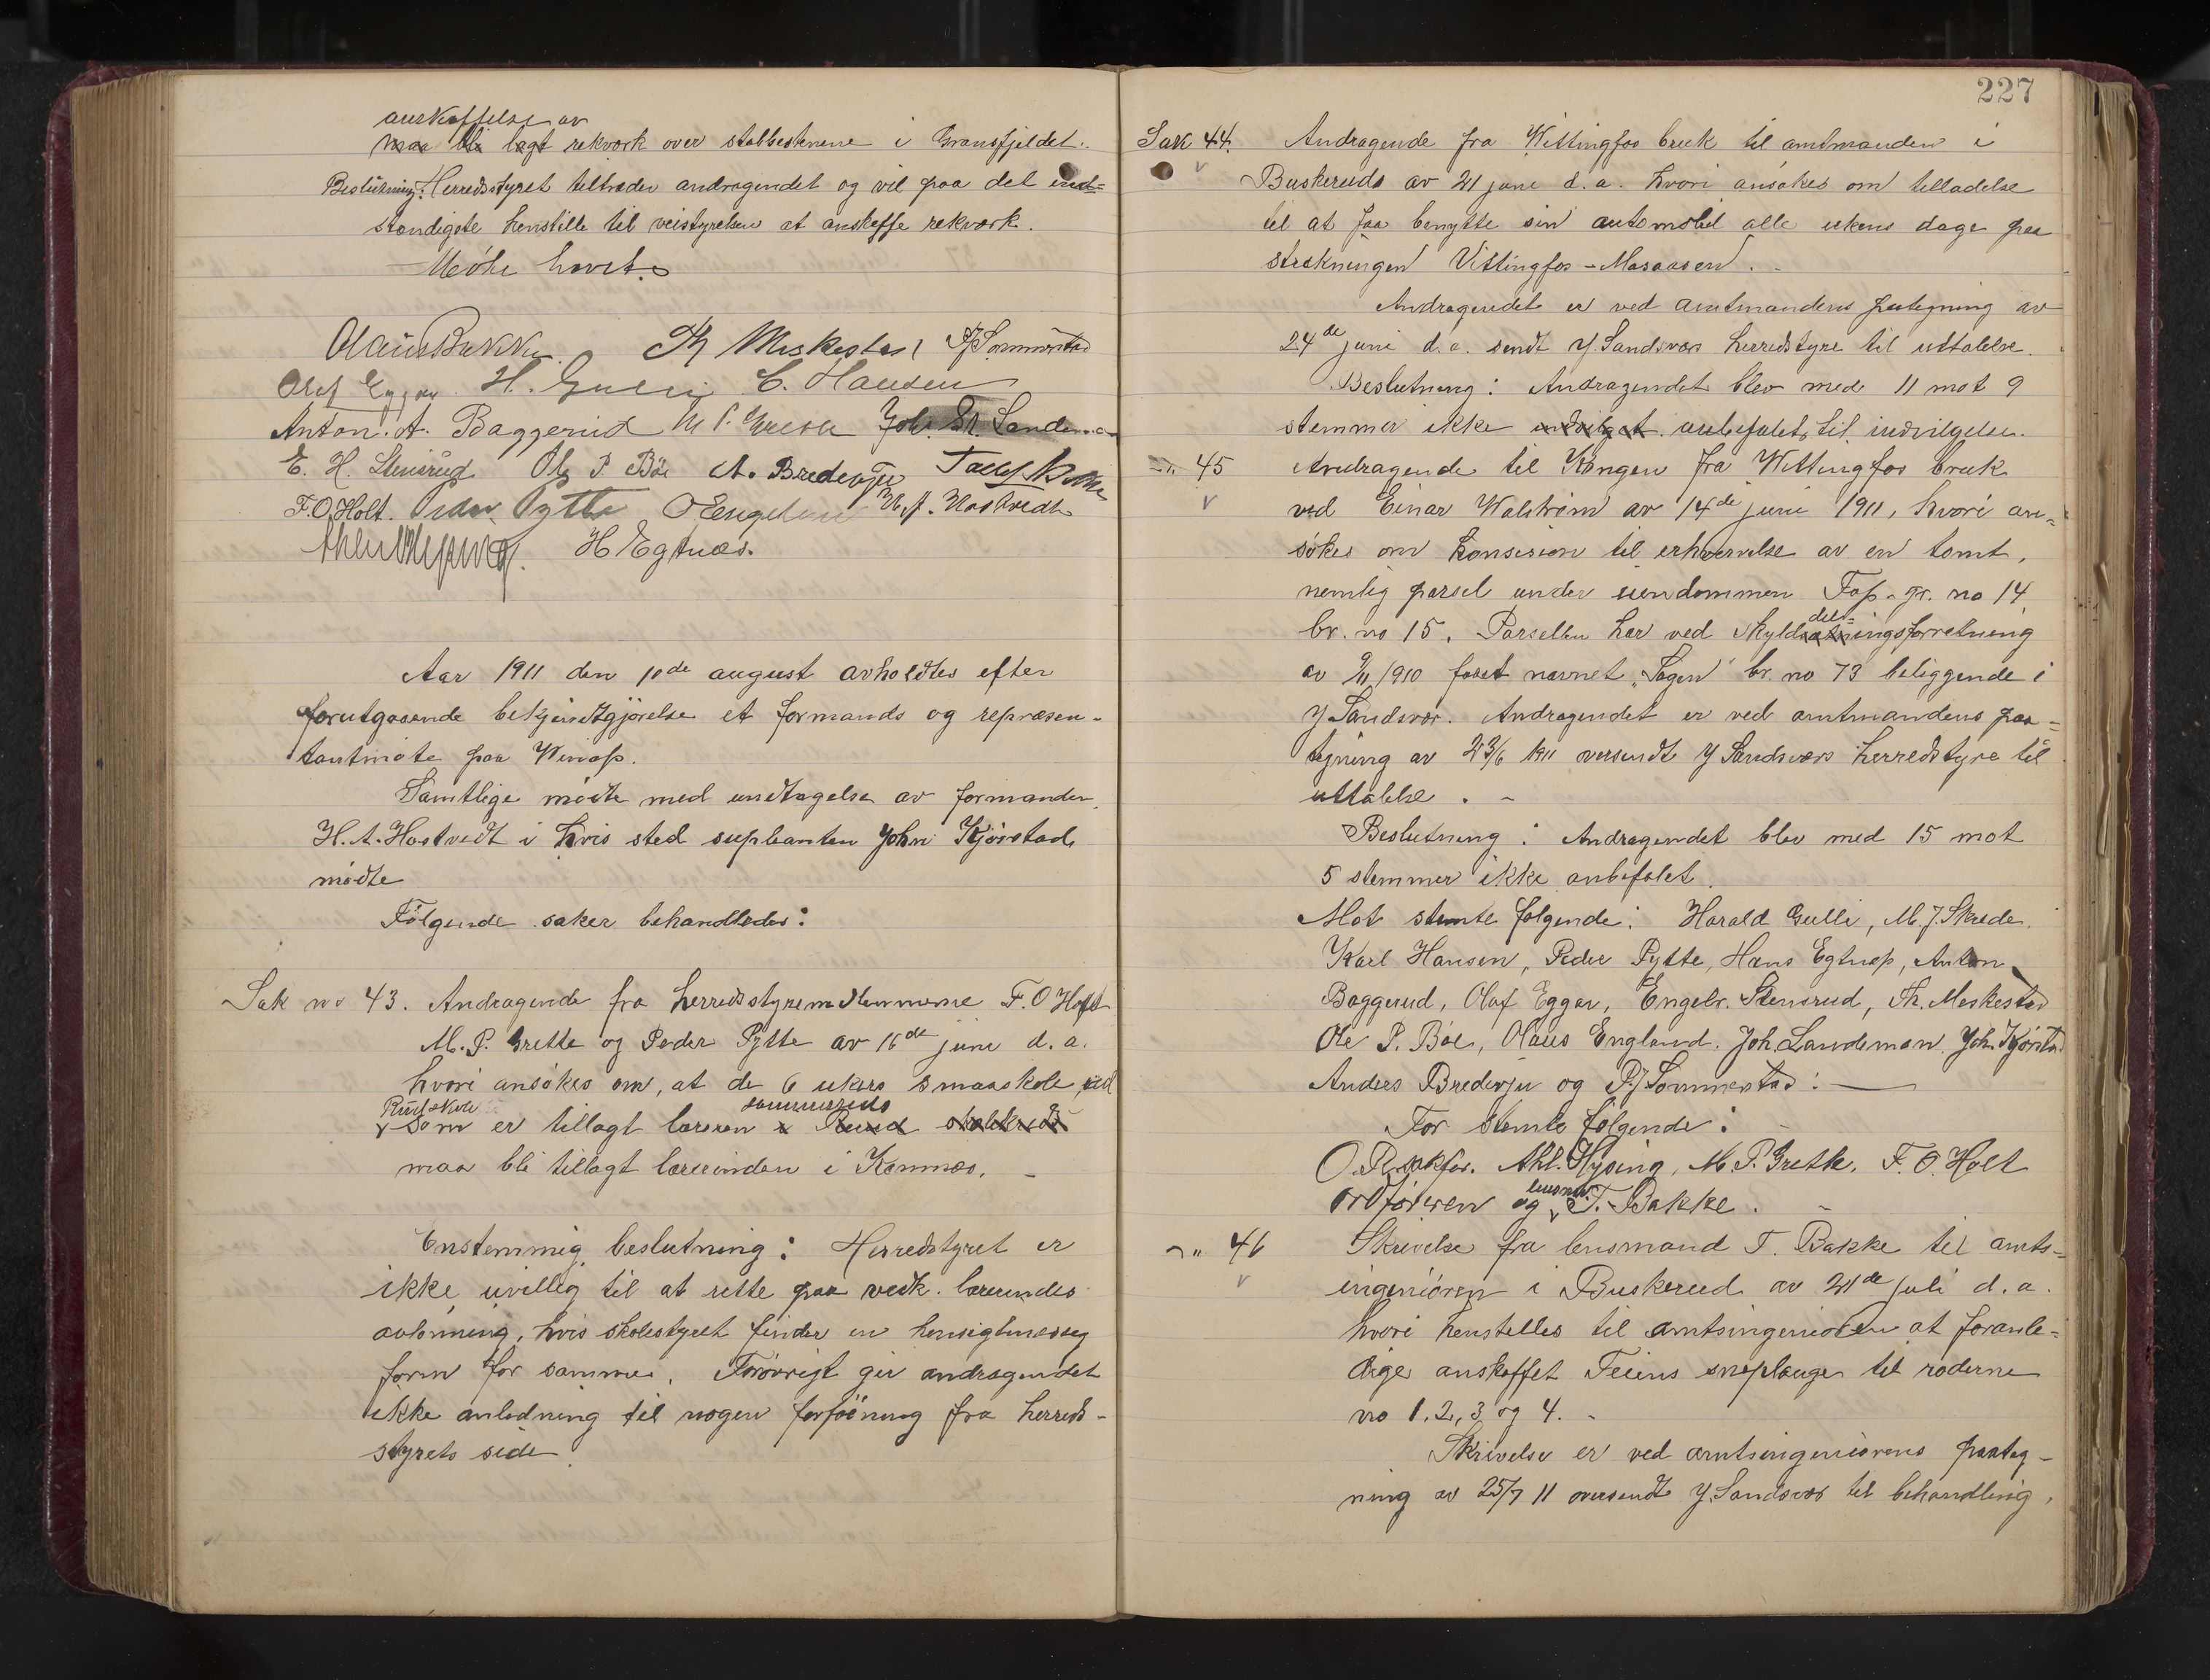 anskaffelse av
maa bli lagt rekværk over stabbestenene i Gransfjeldet.
Beslutning: Herredsstyret tiltræder andragendet og vil paa det ind=
stændigste henstille til veistyrelsen at anskaffe rekværk.
Møte hævet.
Olaus Bakke. Th Meskestad P J Sommerstad
Olaf Eggar H. Gulli C. Hansen
Anton. A. Baggerud M P. Grette Joh. Landeman
E. H. Stensrud Ole P Bøe A. Bredevju
F. O. Holt. Peder Pytte O Engelun H. A. Hostvedt
H Egtnæs.
Aar 1911 den 10de august avholdtes efter
forutgaaende bekjendtgjørelse et formands og repræsen-
tantmøte paa Winæs.
Samtlige mødte med undtagelse av formanden
H. A. Hostvedt i hvis sted supleanten John Kjørstad
mødte
Følgende saker behandledes:
Sak no 43. Andragende fra herredsstyremedlemmerne F. O Holt
M. P. Grette og Peder Pytte av 16de juni d. a.
hvori ansøkes om, at de 6 ukers smaaskole ved
Rudskole sommerveis
som er tillagt læreren i Ruud skolekreds
maa bli tillagt lærerinden i Komnæs. -
Enstemmig beslutning: Herredstyret er
ikke uvillig til at rette paa vedk. lærerindes
avlønning, hvis skolestyret finder en hensigtmæssig
form for samme. Forøvrigt gir andragendet
ikke anledning til nogen forføining fra herreds-
styrets side.
227
Sak 44. Andragende fra Wittingfos bruk til amtmanden i
Buskeruds av 21 juni d. a. hvori ansøkes om tilladelse
til at faa benytte sin automobil alle ukens dage paa
strækningen Vittingfos - Masaasen. -
Andragendet er ved amtmandens pategning av
24de juni d. a. sendt Y. Sandsvær herredstyre til uttalelse.
Beslutning: Andragendet blev med 11 mot 9
stemmer ikke indvilget anbefalet til indvilgelse.
-"- 45 Andragende til Kongen fra Wittingfos bruk
ved Einar Walstrøm av 14de juni 1911, hvori an=
søkes om konsesion til erhvervelse av en tomt,
nemlig parsel under eiendommen Fos - gr. no 14
br. no 15. Parsellen har ved skylddelingsforretning
av 9/11 1910 faaet navnet "Sagen" br. no 73 beliggende i
Y Sandsvær. Andragendet er ved amtmandens paa=
tegning av 23/6 1911 oversendt Y Sandsværs herredstyre til
uttalelse. -
Beslutning: Andragendet blev med 15 mot
5 stemmer ikke anbefalet.
Mot stemte følgende: Harald Gulli, M. J. Skrede
Karl Hansen, Peder Pytte, Hans Egtnæs, Anton
Baggerud, Olaf Eggar, Engebr. Stensrud, Th. Meskestad
Ole P. Bøe, Olaus England. Joh. Landeman. Joh. Kjørstad
Anders Bredevju og P. J Sommerstad: —
For stemte følgende:
Ahl. Hysing, M. P. Grette. F. O. Holt
ordføreren og lensm. T. Bakke. -
-"- 46 Skrivelse fra lensmand T. Bakke til amts=
ingeniøren i Buskerud av 21de juli d. a.
hvori henstilles til amtsingeniøren at foranle=
dige anskaffet Feiens sneplouger til roderne
no 1, 2, 3 og 4. -
Skrivelse er ved amtsingeniørens paateg-
ning av 25/7 11 oversendt Y. Sandsvær til behandling.